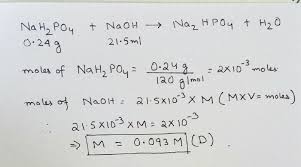 NaH₂PO₄ + NaOH → Na₂HPO₄ + H₂O
0.24g 21.5ml
moles of NaH₂PO₄ = 0.24 g / 120 g/mol = 2×10⁻³ moles
moles of NaOH = 21.5×10⁻³ × M (M×V = moles)
∴ 21.5×10⁻³ × M = 2×10⁻³
⇒ M = 0.093 M (D).